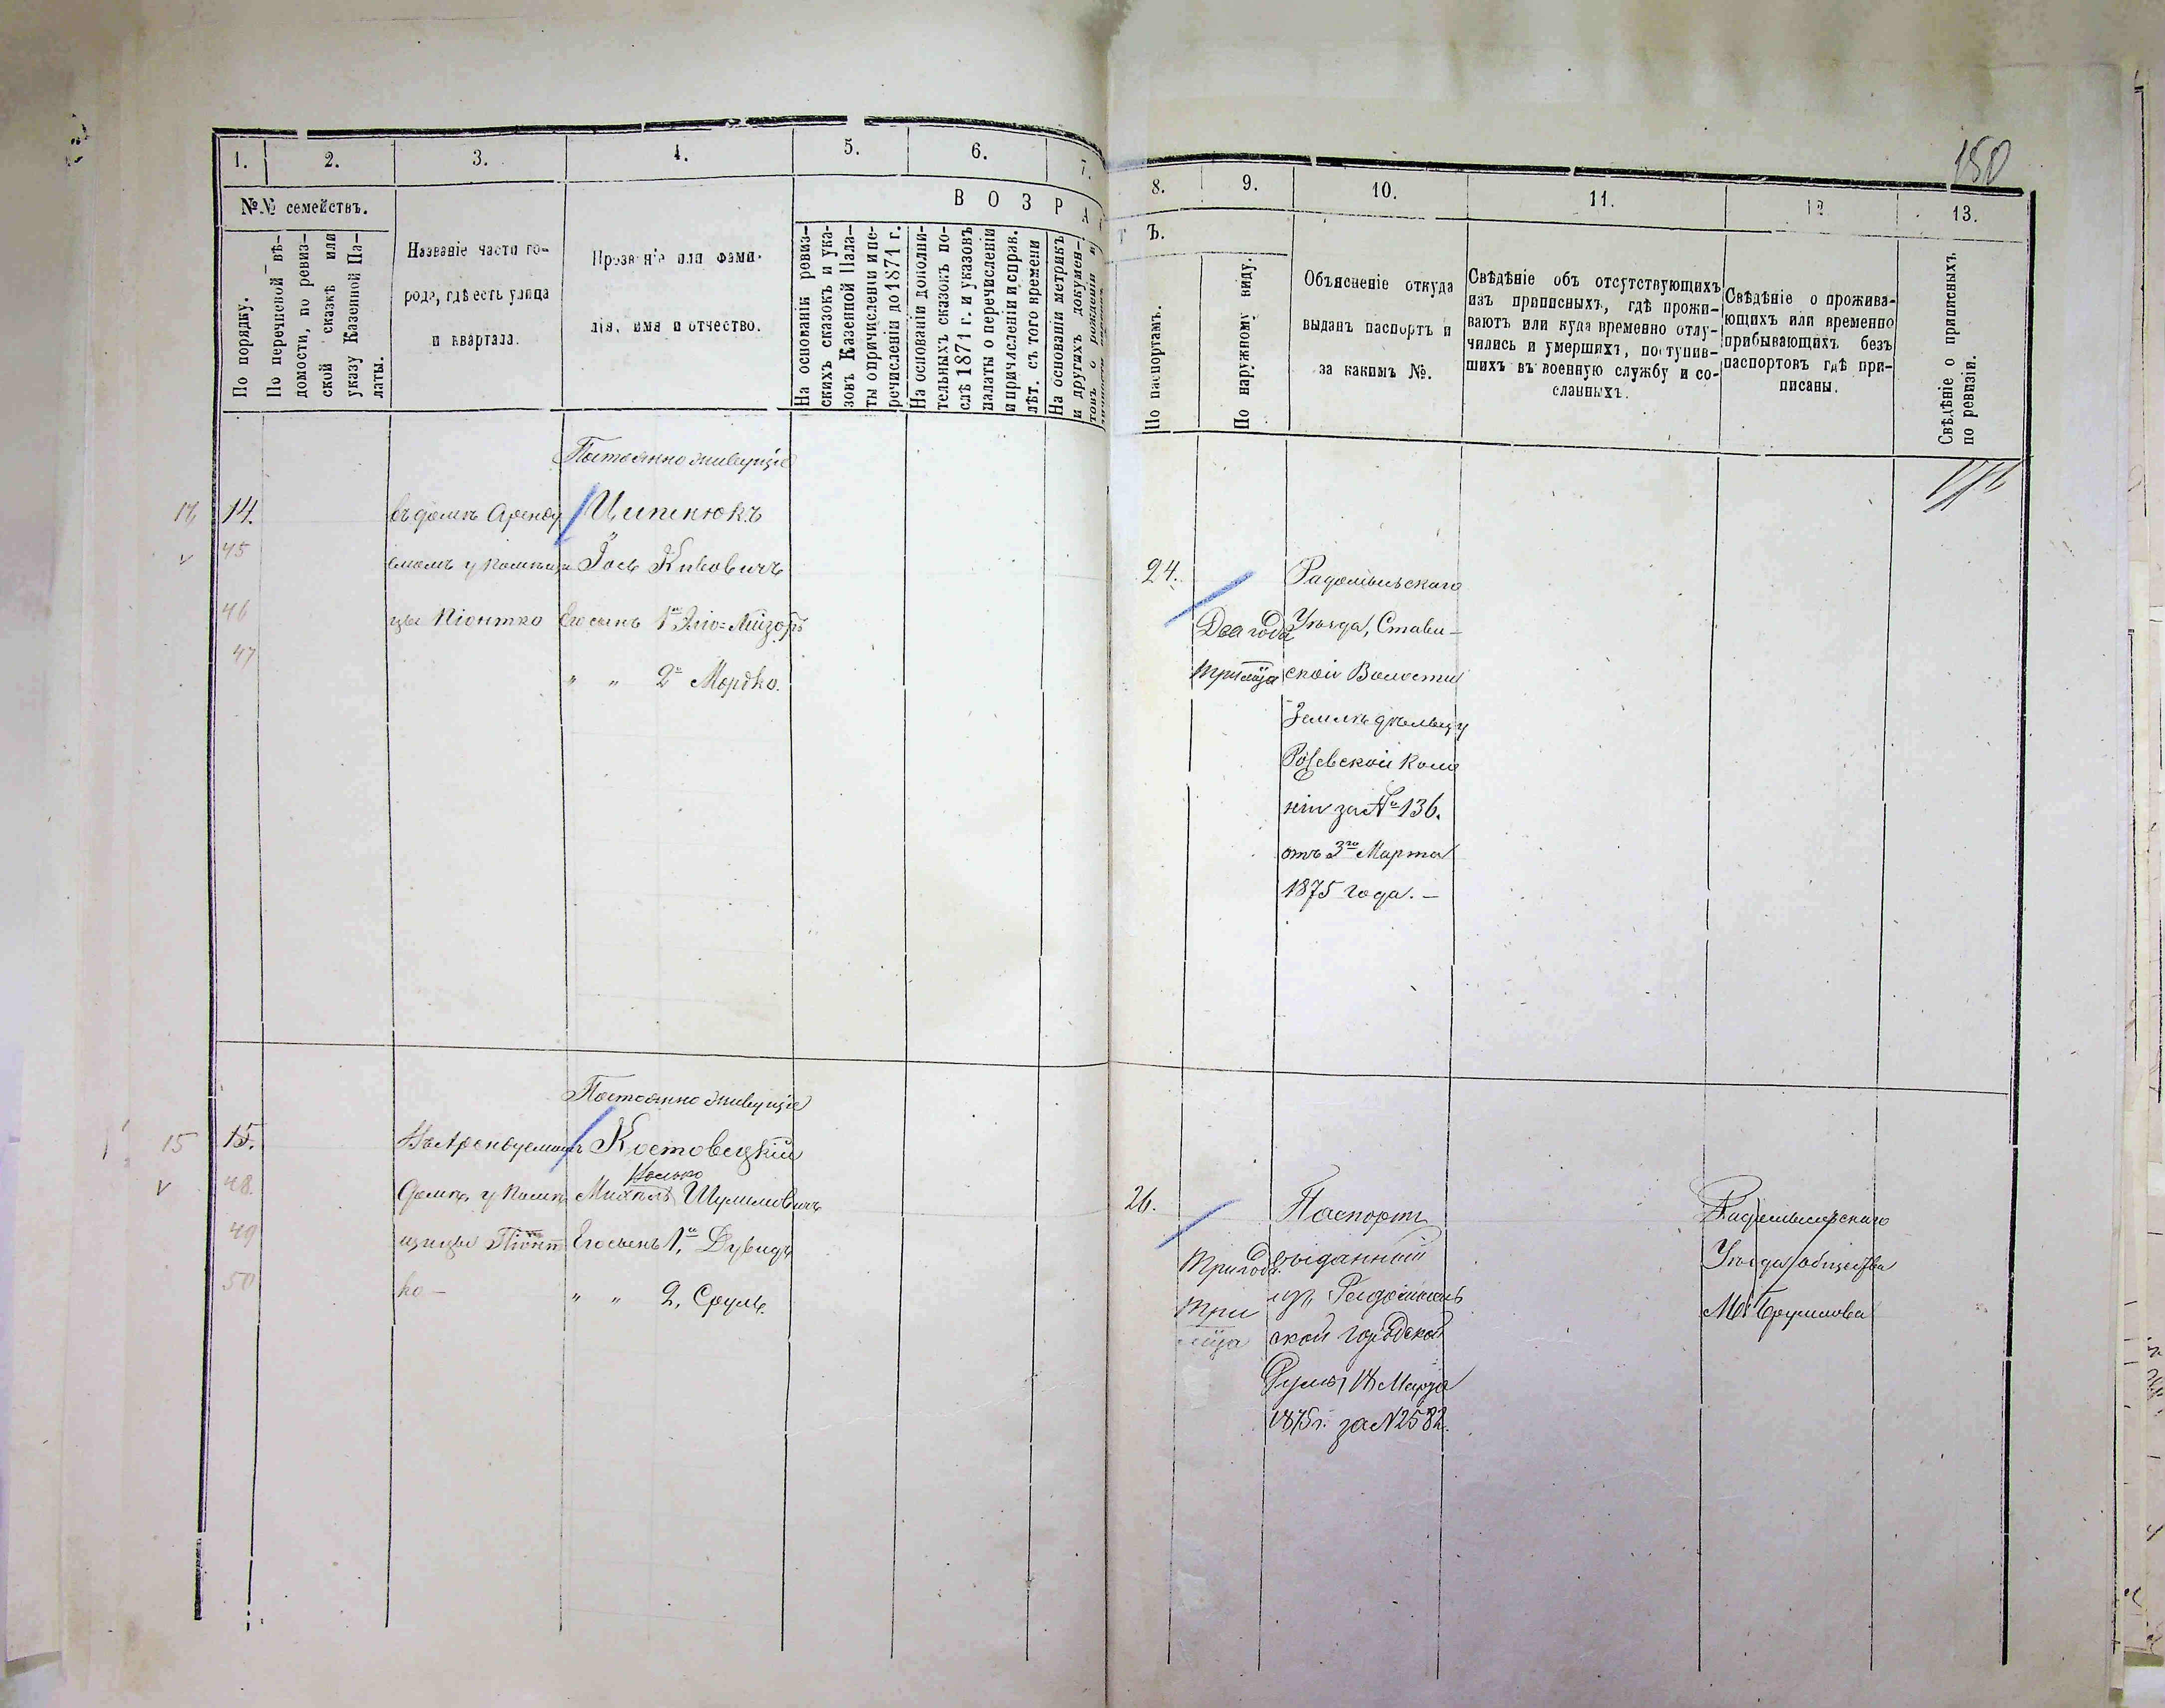 150
1. 2. 3. 4. 5. 6. 7. 8. 9. 10. 11. 12 13.
№№ семействъ.
По порядку.
По перечневой вѣ-
домости, по ревиз-
ской сказкѣ или
указу Казенной Па-
латы.
Названіе части го-
рода, гдѣ есть улица
и квартала.
Прозваніе или фами-
лія, имя и отчество.
ВОЗРА
ТЪ.
На основаніи ревиз-
скихъ сказокъ и ука-
зовъ Казенной Пала-
ты о причисленіи и пе-
речисленіи до 1871 г.
На основаніи дополни-
тельныхъ сказокъ по-
слѣ 1871 г. и указовъ
палаты о перечисленіи
и причисленіи исправ.
лѣт. съ того времени
На основаніи метрикъ
и другихъ докумен-
товъ о рожденіи и
По паспортамъ.
По наружному виду.
Объясненіе откуда
выданъ паспортъ и
за какимъ №.
Свѣдѣніе объ отсутствующихъ
изъ приписныхъ, гдѣ прожи-
ваютъ или куда временно отлу-
чились и умершихъ, поступив-
шихъ въ военную службу и со-
сланныхъ.
Свѣдѣніе о прожива-
ющихъ или временно
прибывающихъ безъ
паспортовъ гдѣ при-
писаны.
Свѣдѣніе о приписныхъ
по ревизіи.
Постоянно живущіе
14.
въ домѣ Аренду
Ципенюкъ
45
емомъ у помѣщи
Іось Кивовичъ
46
цы Піонтко
Его сынъ 1й Эліо=Лийзоръ
47
" " 2й Мордко.
24.
Два года
три м̃ца
Радомысльскаго
Уѣзда, Стави-
ской Волости
Земледѣльцу
Коло
ніи за № 136.
отъ 3го Марта
1875 года. —
Постоянно живущіе
15 15.
Въ Арендуемомъ
Костовецкій
48.
домѣ у помѣ
Іосько
Михель Шулимовичъ
49
щицы Піонт
Его сынъ 1й Дувидъ
50
ко —
" " 2, Сруль.
26.
Три года
три
м̃ца
Паспортъ
выданный
изъ Радомысль
ской Городской
Думы 14 Марта
1875 г. за № 2582.
Радомысльскаго
Уѣзда общества
М. Брусилова